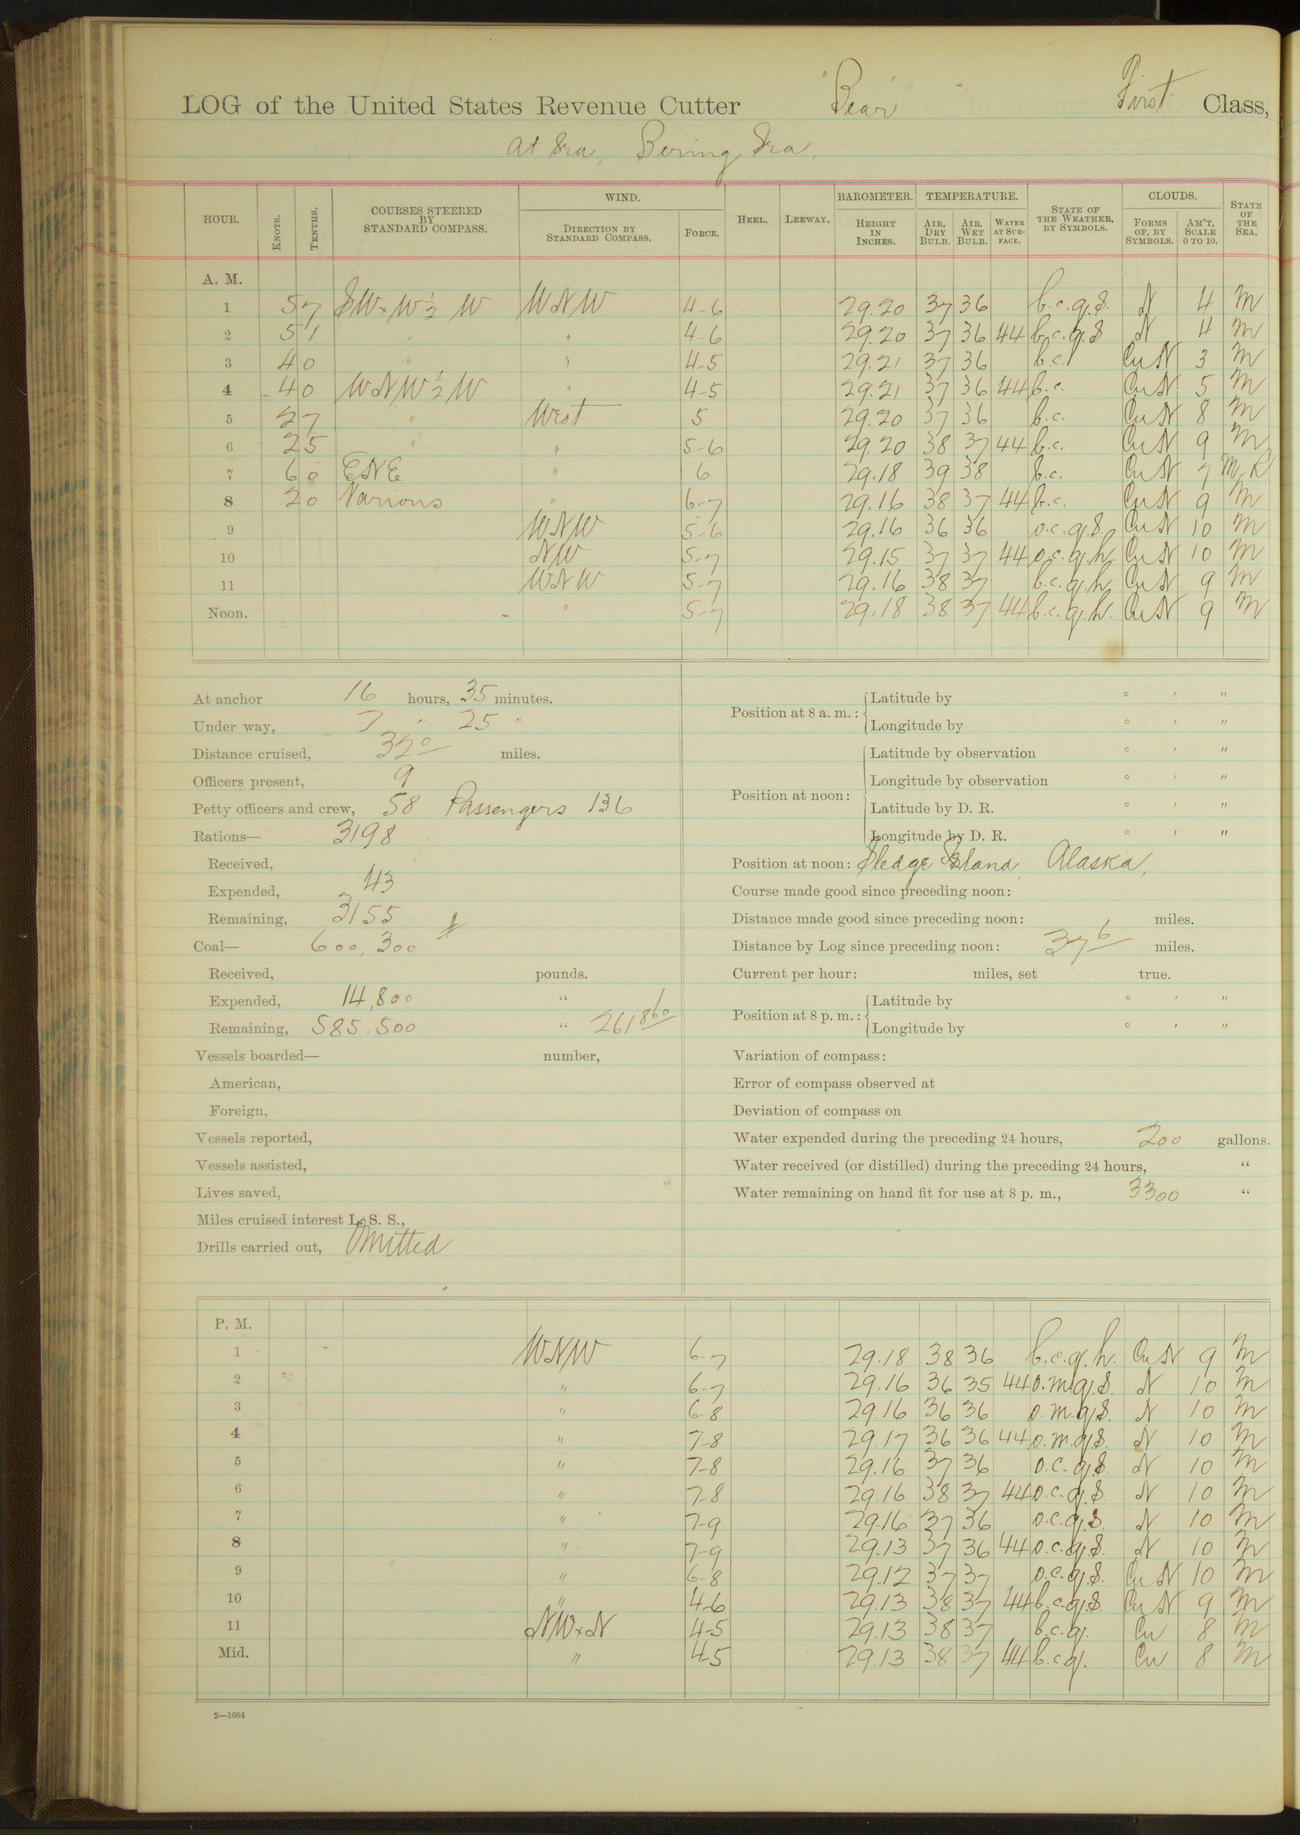 LOG of the United States Revenue Cutter "Bear" First Class,
At Sea, Bering Sea.
HOUR. KNOTS. TENTHS. COURSES STEERED BY STANDARD COMPASS. WIND. DIRECTION BY STANDARD COMPASS. FORCE. HEEL. LEEWAY. BAROMETER. HEIGHT IN INCHES. TEMPERATURE. AIR, DRY BULB. AIR, WET BULB. WATER AT SURFACE. STATE OF THE WEATHER, BY SYMBOLS. CLOUDS. FORMS OF, BY SYMBOLS. AM'T, SCALE 0 TO 10. STATE OF THE SEA.
A. M.
1 5 7 SWxW½W WNW 4-6 29.20 37 36 b.c.q.s. N 4 M
2 5 1 " " 4-6 29.20 37 36 44 b.c.q.s N 4 M
3 4 0 " " 4-5 29.21 37 36 b.c. CuN 3 M
4 4 0 WNW½W " 4-5 29.21 37 36 44 b.c. CuN 5 M
5 2 7 " West 5 29.20 37 36 b.c. CuN 8 M
6 2 5 " " 5-6 29.20 38 37 44 b.c. CuN 9 M
7 6 0 ENE " 6 29.18 39 38 b.c. CuN 7 M.R
8 2 0 Various " 6-7 29.16 38 37 44 b.c. CuN 9 M
9 WNW 5-6 29.16 36 36 o.c.q.s. CuN 10 M
10 NW 5-7 29.15 37 37 44 o.c.q.h. CuN 10 M
11 WNW 5-7 29.16 38 37 b.c.q.h. CuN 9 M
Noon. " 5-7 29.18 38 37 44 b.c.q.h. CuN 9 M
At anchor 16 hours, 35 minutes.
Under way, 7 " 25 "
Distance cruised, 32 0 miles.
Officers present, 9
Petty officers and crew, 58 Passengers 136
Rations— 3198
Received,
Expended, 43
Remaining, 3155
Coal— 600,300 #
Received, pounds.
Expended, 14,800 "
Remaining, 585.500 " 261 860
Vessels boarded— number,
American,
Foreign,
Vessels reported,
Vessels assisted,
Lives saved,
Miles cruised interest L. S. S.,
Drills carried out, Omitted
Position at 8 a. m.: Latitude by ° ' "
Longitude by ° ' "
Position at noon: Latitude by observation ° ' "
Longitude by observation ° ' "
Latitude by D. R. ° ' "
Longitude by D. R. ° ' "
Position at noon: Sledge Island, Alaska,
Course made good since preceding noon:
Distance made good since preceding noon: miles.
Distance by Log since preceding noon: 37 6 miles.
Current per hour: miles, set true.
Position at 8 p. m.: Latitude by ° ' "
Longitude by ° ' "
Variation of compass:
Error of compass observed at
Deviation of compass on
Water expended during the preceding 24 hours, 200 gallons.
Water received (or distilled) during the preceding 24 hours, "
Water remaining on hand fit for use at 8 p. m., 3300 "
P. M.
1 WNW 6-7 29.18 38 36 b.c.q.h. CuN 9 M
2 " 6-7 29.16 36 35 44 o.m.q.s. N 10 M
3 " 6-8 29.16 36 36 o.m.q.s. N 10 M
4 " 7-8 29.17 36 36 44 o.m.q.s. N 10 M
5 " 7-8 29.16 37 36 o.c.q.s. N 10 M
6 " 7-8 29.16 38 37 44 o.c.q.s N 10 M
7 " 7-9 29.16 37 36 o.c.q.s. N 10 M
8 " 7-9 29.13 37 36 44 o.c.q.s. N 10 M
9 " 6-8 29.12 37 37 o.c.q.s. CuN 10 M
10 " 4-6 29.13 38 37 44 b.c.q.s. CuN 9 M
11 NWxN 4-5 29.13 38 37 b.c.q. Cu 8 M
Mid. " 4-5 29.13 38 37 44 b.c.q. Cu 8 M
2—1664